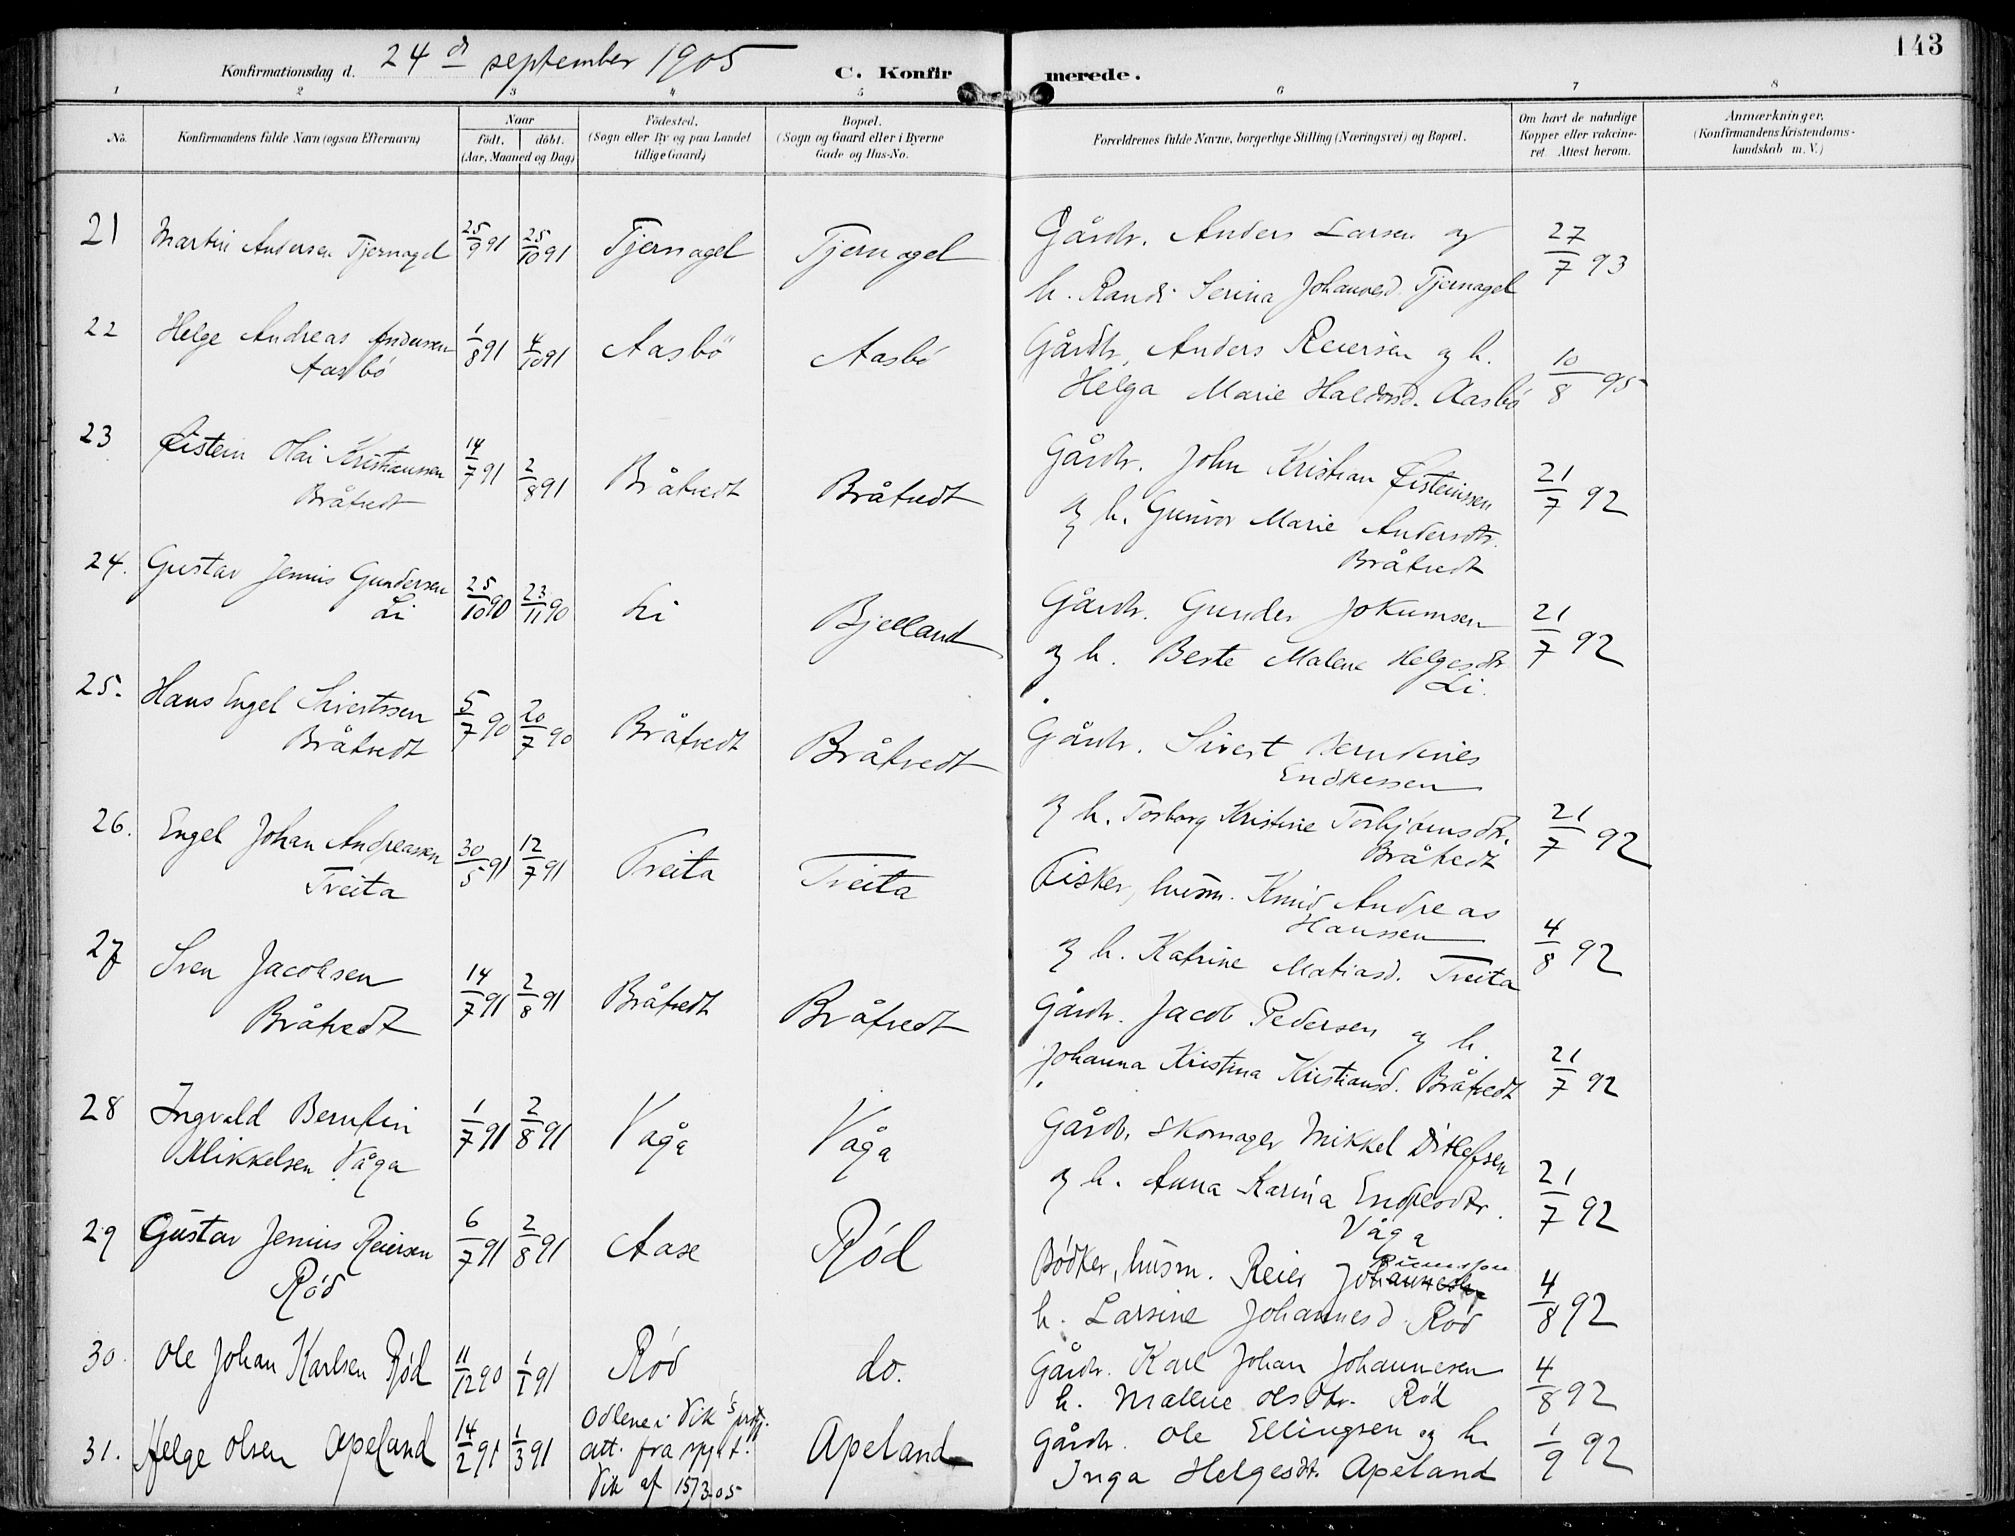 143
Konfirmationsdag d. 24 d september 1905
C. Konfirmerede.
1 2 3 4 5 6 7 8
No.
Konfirmandens fulde Navn (ogsaa Efternavn)
Naar
født. døbt.
(Aar, Maaned og Dag)
Fødested.
(Sogn eller By og paa Landet
tillige Gaard)
Bopæl.
(Sogn og Gaard eller i Byerne
Gade og Hus-No.
Forældrenes fulde Navne, borgerlige Stilling (Næringsvei) og Bopæl.
Om havt de naturlige
Kopper eller vakcine-
ret. Attest herom.
Anmærkninger.
(Konfirmandens Kristendoms-
kundskab m. V.)
21 Martin Andersen Tjernagel 25/9 91 25/10 91 Tjernagel Tjernagel Gårdbr. Anders Larsen og 27/7 93
h. Randi Serina Johannesd. Tjernagel
22 Helge Andreas Andersen 1/8 91 4/10 91 Aasbö Aasbø Gårdbr. Anders Reiersen og h. 10/8 95
Aasbö Helga Marie Haldorsd. Aasbö
23 Øistein Olai Kristianssen 14/7 91 2/8 91 Bråtvedt Bråtvedt Gårdbr. John Kristian Øisteinssen 21/7 92
Bråtvedt og h. Gunvor Marie Andersdtr.
Bråtvedt
24. Gustav Jenius Gundersen 25/10 90 23/11 90 Li Bjelland Gårdbr. Gunder Jokumsen 21/7 92
Li og h. Berte Malene Helgesdtr
Li.
25. Hans Engel Sivertssen 5/7 90 20/7 90 Bråtvedt Bråtvedt Gårdbr. Sivert
Bråtvedt Endressen
og h. Torborg Kristine Torbjørnsdtr. 21/7 92
Bråtvedt
26. Engel Johan Andreassen 30/5 91 12/7 91 Tveita Tveita Fisker, husm. Knud Andreas
Tveita Hanssen 4/8 92
og h. Katrine Matiasd. Tveita
27 Sven Jacobsen 14/7 91 2/8 91 Bråtvedt Bråtvedt Gårdbr. Jacob Pedersen og h.
Bråtvedt Johanna Kristina Kristiansd. Bråtvedt 21/7 92
28 Ingvald Berntin 1/7 91 2/8 91 Våga Våga Gårdb. skomager Mikkel Ditlefsen
Mikkelsen Våga og h. Anna Karina Endresdtr. 21/7 92
Våga
29 Gustav Jenius Reiersen 6/7 91 2/8 91 Aase Rød Bødker, husm. Reier
Rød h. Larsine Johannesd. Rød 4/8 92
30. Ole Johan Karlsen Rød 11/12 90 1/1 91 Rød do. Gårdbr. Karl Johan Johannesen 4/8 92
h. Mallene Olsdtr. Rød
31. Helge Olsen Apeland 14/2 91 1/3 91 Ødlene i Vik s
att. fra
Vik af 15/3-05 Apeland Gårdbr. Ole Ellingsen og h. 1/9 92
Inga Helgesdtr. Apeland